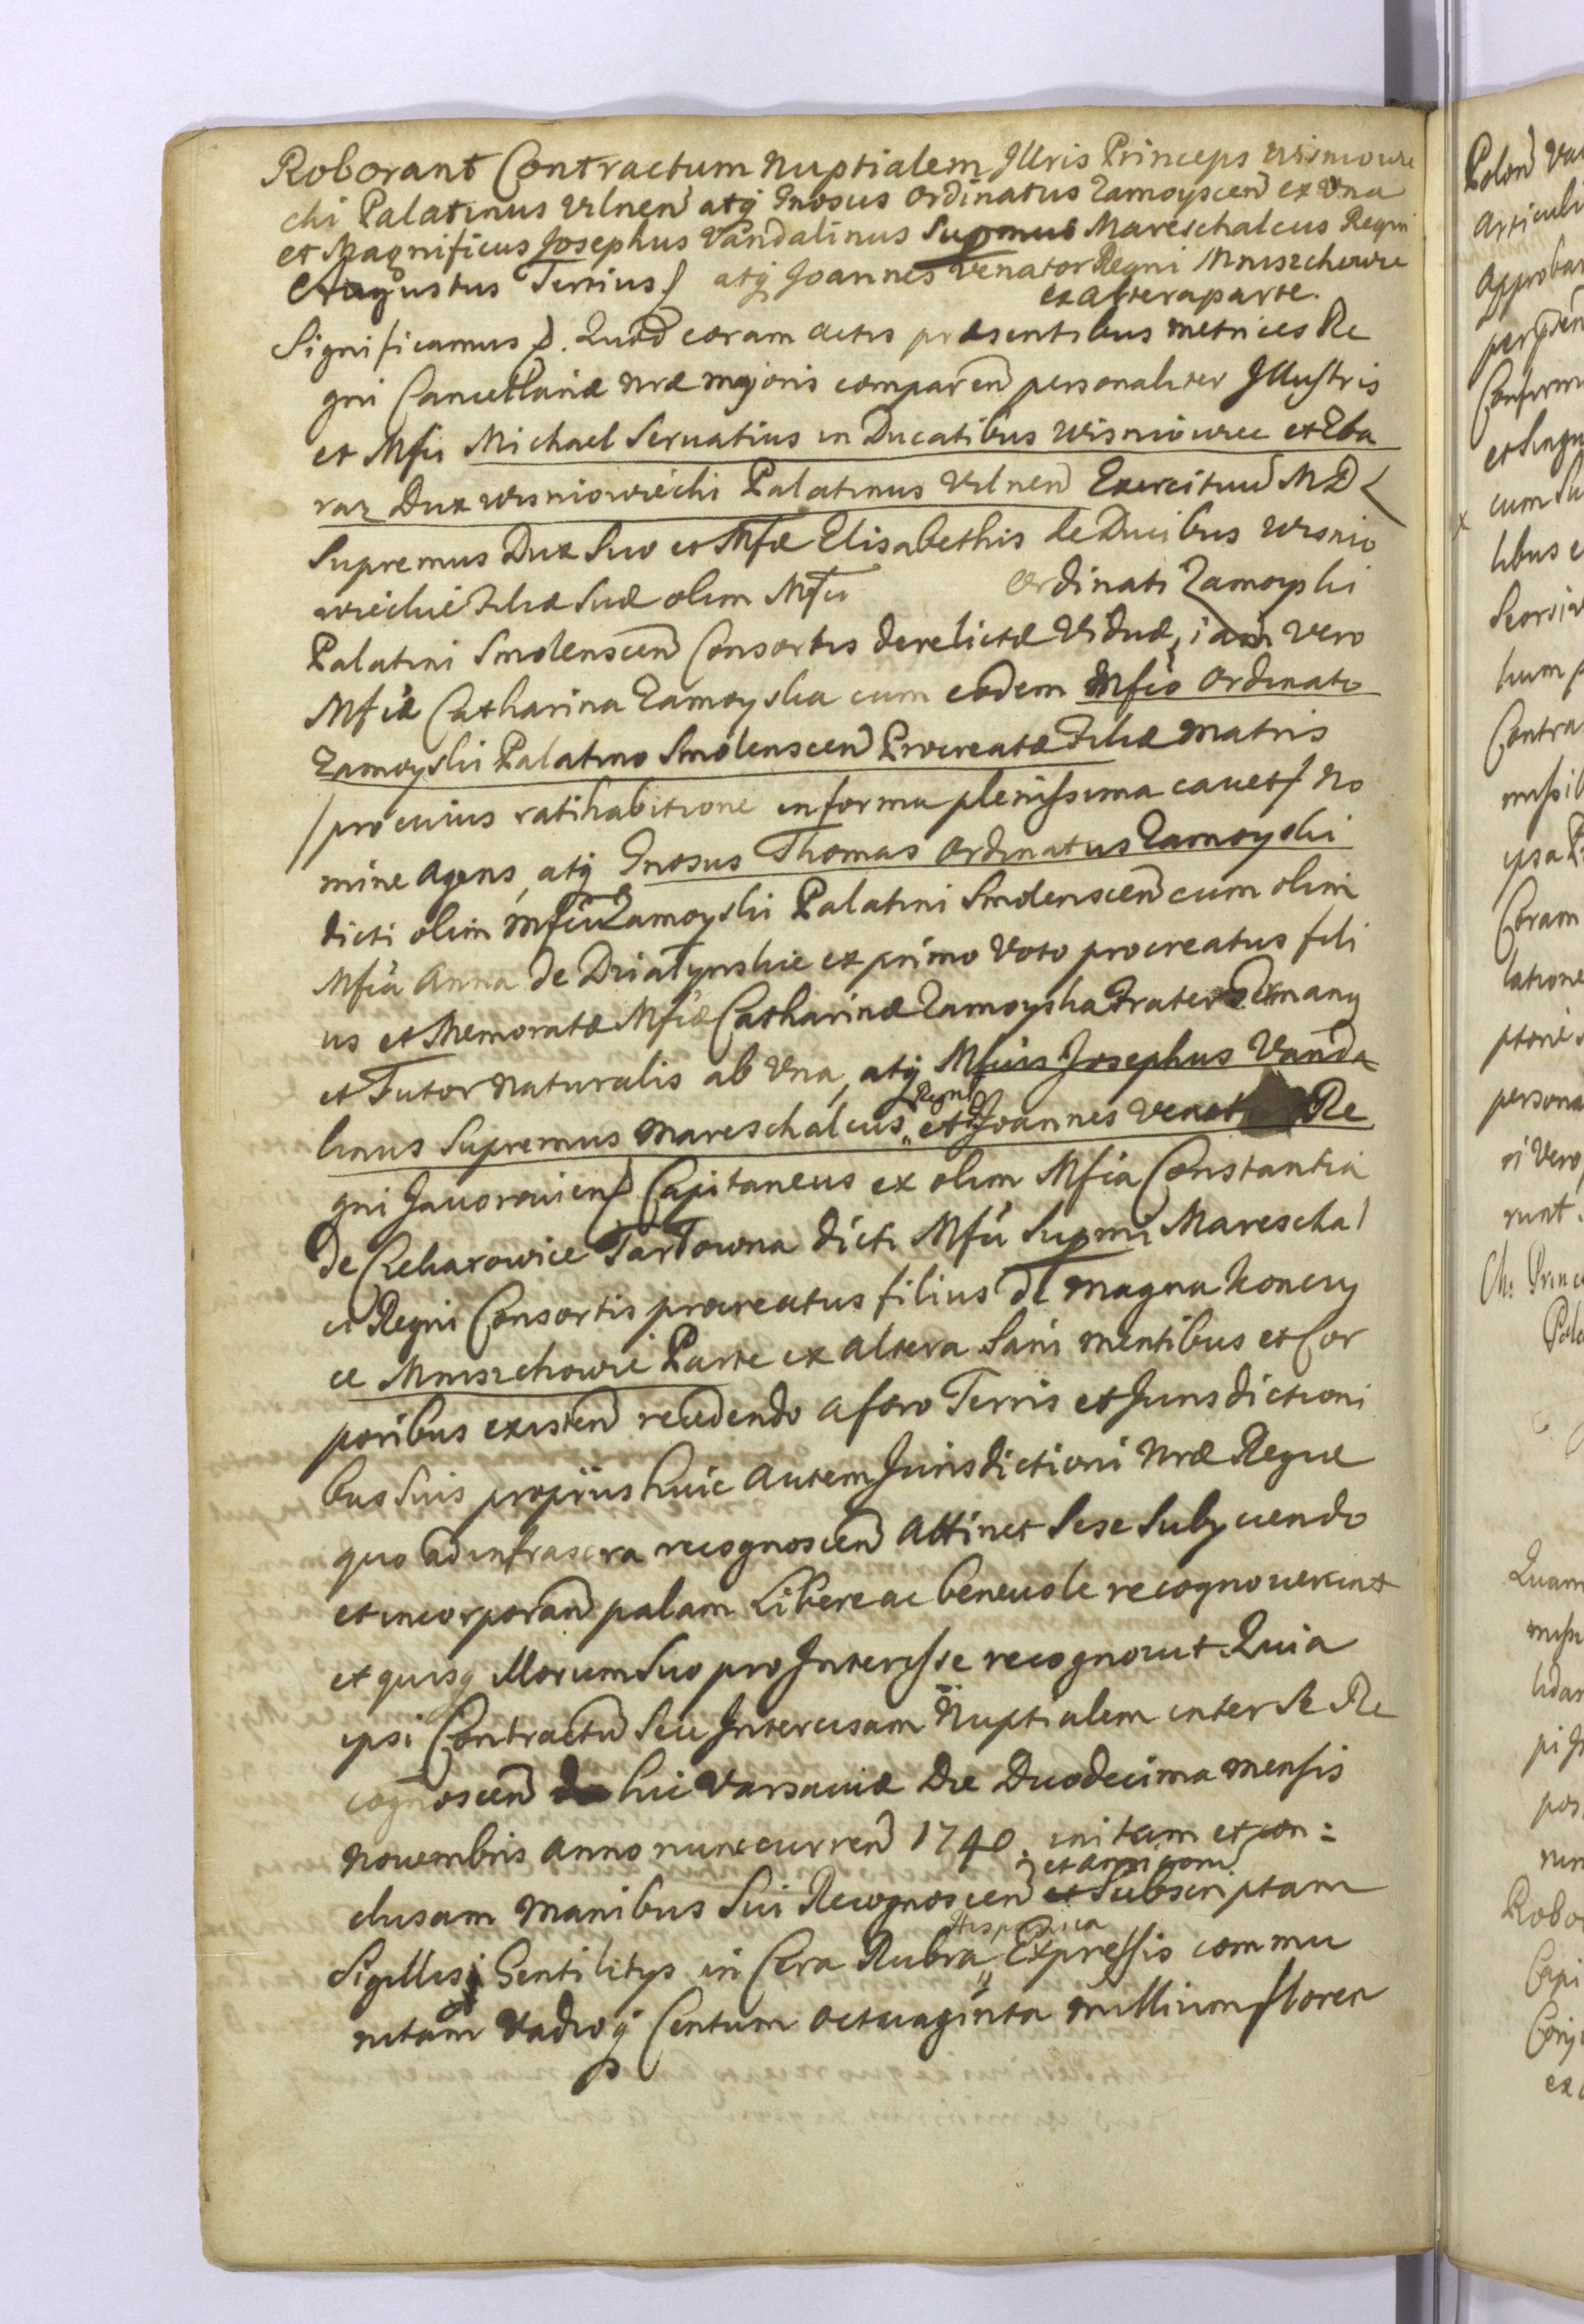 Roborant Contractum Nuptialem Illris Princeps Wisniowie
cki Palatinus Vilnen atq Gnosus Ordinatus Zamoyscen ex Una
et Magnificus Josephus Vandalinus Supmus Mareschalcus Regni
atq Joannes Venator Regni Mniszchowie
ex altera parte.
Augustus Tertius
Significamus. Quod coram actis præsentibus metrices Re
gni Cancellariæ nræ majoris comparen personaliter Illustris
et Mfci Michael Servatius in Ducatibus Wisniowiec et Zba
raz Dux Wisniowiecki Palatinus Vilnen Exercituu M D L
Supremus Dux Suo et Mfcæ Elisabethis de Ducibus Wisnio
wieckie Filiæ Suæ olim Mfci Ordinati Zamoyski
Palatini Smolenscen Consortis derelictæ Viduæ, iam vero
Mfcæ Catharina Zamoyska cum eodem Mfco Ordinato
Zamoyski Palatino Smolenscen Procreatæ Filiæ matris
/pro cuius ratihabitione in forma plenissima cavet/ no
mine agens, atq Gnosus Thomas Ordinatus Zamoyski
dicti olim Mfci Zamoyski Palatini Smolenscen cum olim
Mfca Anna de Dzialynskie ex primo voto procreatus fili
us et Memoratæ Mfcæ Catharinæ Zamoyska Frater Germany
et Tutor naturalis ab Una, atq Mfcus Josephus Vanda
linus Supremus Mareschalcus Regni et Joannes Venator Re
gni Javorovien Capitaneus ex olim Mfca Constantia
de Czekarowice Tarłowna dicti Mfci Supmi Mareschal
ci Regni Consortis procreatus filius de magna Konczy
ce Mniszchowie Parte ex altera Sani mentibus et Cor
poribus existen recedendo a foro Terris et Jurisdictioni
bus Suis propriis huic autem Jurisdictioni Nræ Regiæ
quo ad infrascra recognoscen attinet Sese Subijciendo
et incorporan palam Libere ac benevole recognoverunt
et quisq Illorum Suo pro Interesse recognovit Quia
ipsi Contractu Seu Intercisam Nuptialem inter Se Re
cognoscen hic Varsaviæ Die Duodecima mensis
Novembris anno nunc curren 1740. initam et con=
clusam Manibus Sui Recognoscen et amicorum Subscriptam
Sigillisq Gentilitys in Cera Rubra Hispanica Expressis commu
nitam Vadioq Centum octuaginta millium floren